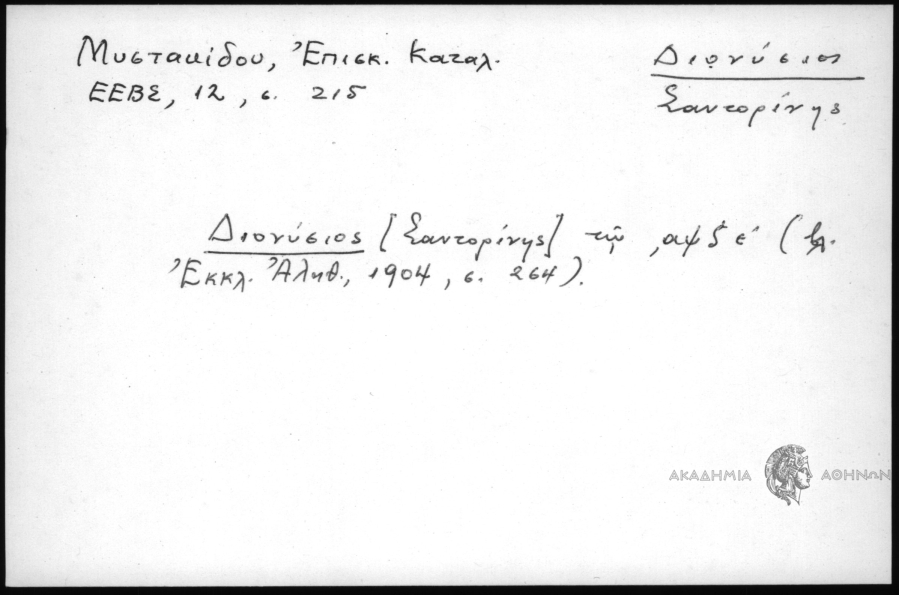 Μυστακίδου, Ἐπισκ. Καταλ.
ΕΕΒΣ, 12, σ. 215
Διονύσιος
Σαντορίνης
Διονύσιος [Σαντορίνης] τῷ ͵αψξε´ (βλ.
Ἐκκλ. Ἀλήθ., 1904, σ. 264).
ΑΚΑΔΗΜΙΑ ΑΘΗΝΩΝ